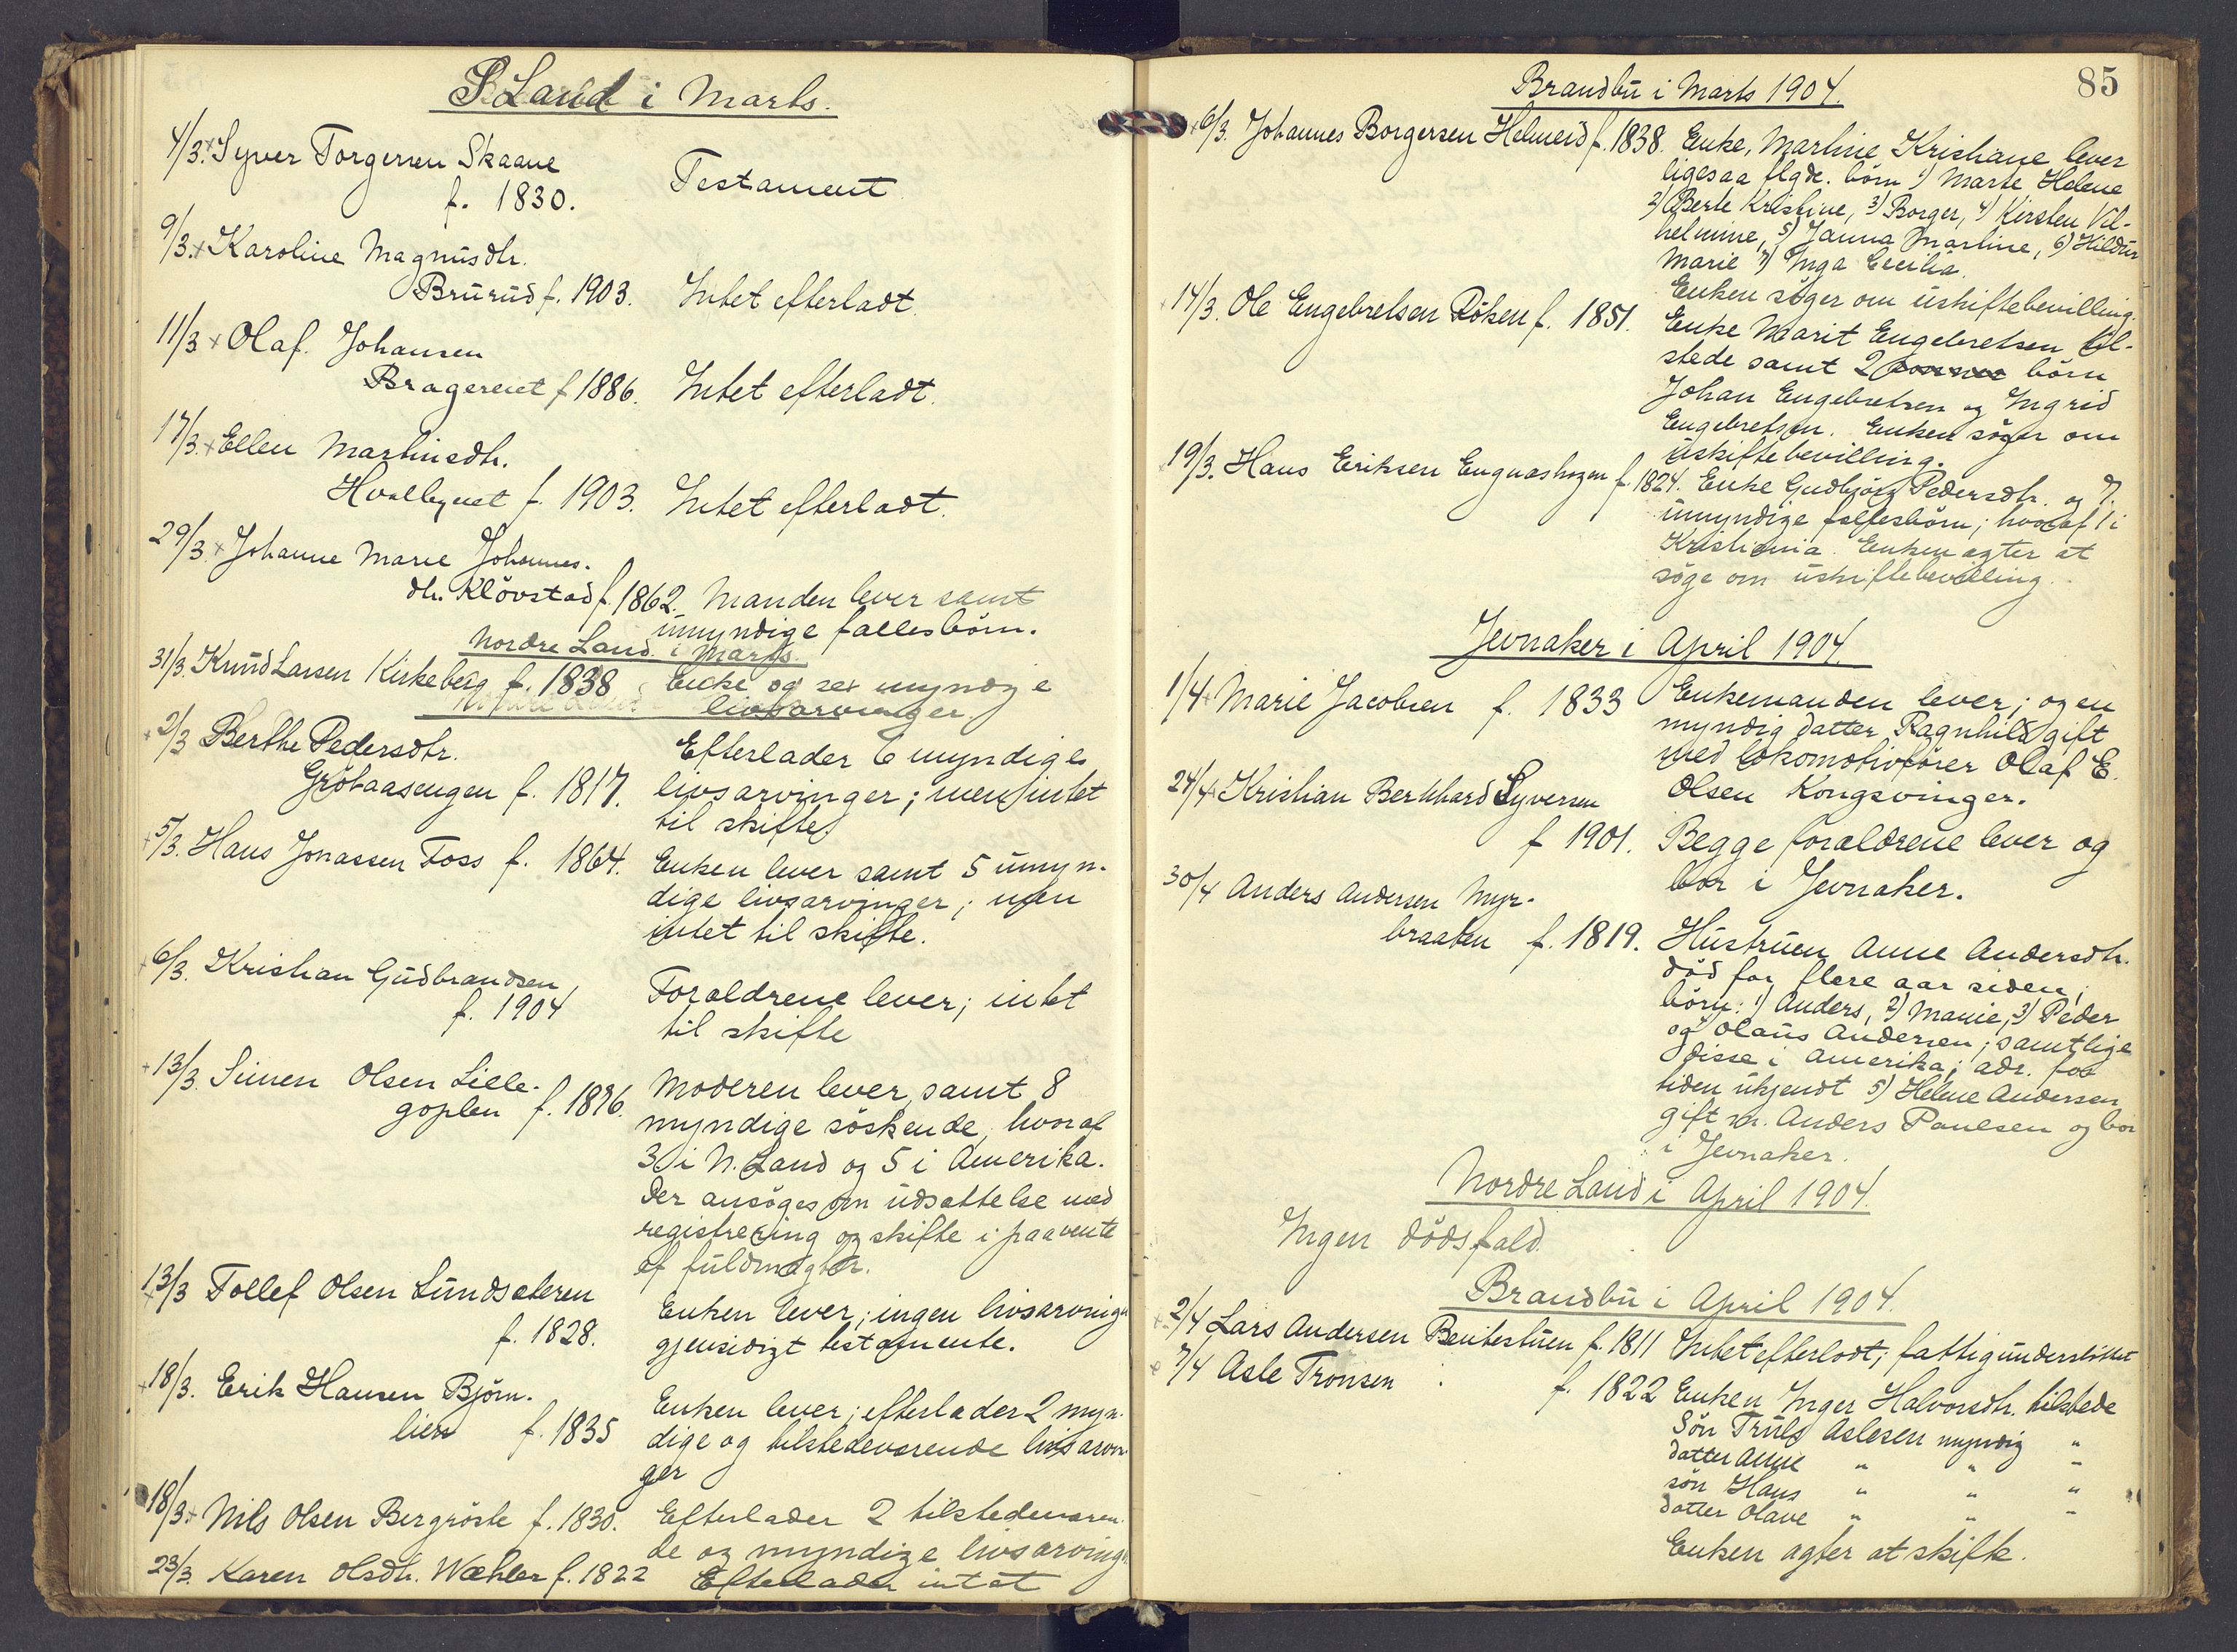 S. Land i Marts.
4/3. Syver Torgersen Skaane
f. 1830. Testament
9/3. Karoline Magnusdtr.
Brurud f. 1903. Intet efterladt.
11/3 Olaf Johansen
Bragereiet f 1886. Intet efterladt.
17/3. Ellen Martinsdtr.
f. 1903. Intet efterladt.
29/3. Johanne Marie Johannes-
dtr. Klövstad f. 1862. Manden lever samt
umyndige fællesbörn.
Nordre Land i Marts.
31/3. Knud Larsen Kirkeberg f. 1838 Enke og sex myndige
livsarvinger
2/3 Berthe Pedersdtr. Efterlader 6 myndige
Grötaasengen f. 1817. livsarvinger; men intet
til skifte
5/3. Hans Jonassen Foss f. 1864. Enken lever samt 5 umyn-
dige livsarvinger; men
intet til skifte.
6/3. Kristian Gudbrandsen
f. 1904 Forældrene lever; intet
til skifte
13/3. Simen Olsen Lille-
goplen f. 1876. Moderen lever, samt 8
myndige söskende, hvoraf
3 i N. Land og 5 i Amerika.
Der ansöges om udsættelse med
registrering og skifte i paavente
af fuldmagter.
13/3 Tollef Olsen Lundsæteren
f. 1828. Enken lever; ingen livsarvinger
gjensidigt testamente.
18/3. Erik Hansen Björn-
lien f. 1835 Enken lever; efterlader 2 myn-
dige og tilstedeværende livsarvin-
ger
18/3. Nils Olsen Bergröste f. 1830. Efterlader 2 tilstedeværen-
de og myndige livsarvinger.
23/3. Karen Olsdtr. Wæhler f. 1822 Efterlader intet
85
Brandbu i Marts 1904.
6/3. Johannes Borgersen Helmeid f. 1838. Enke, Martine Kristiane lever
ligesaa flgde. börn 1) Marte Helene
2) Berte Kristine, 3) Borger, 4) Kirsten Vil-
helmine, 5) Janna Martine, 6) Hildur
Marie 7) Inga Cecilia.
Enken söger om uskiftebevilling.
14/3. Ole Engebretsen Röken f. 1851. Enke Marit Engebretsen til-
stede samt 2 börn
Johan Engebretsen og Ingrid
Engebretsen. Enken söger om
uskiftebevilling.
19/3. Hans Eriksen Engnæshagen f. 1824. Enke Gudbjörg Pedersdtr. og 7
umyndige fællesbörn; hvoraf 1 i
Kristiania. Enken agter at
söge om uskiftebevilling.
Jevnaker i April 1904.
1/4 Marie Jacobsen f. 1833 Enkemanden lever; og en
myndig datter Ragnhild gift
med lokomotivförer Olaf E.
Olsen Kongsvinger.
24/4 Kristian Bernhard Syversen
f 1901. Begge forældrene lever og
bor i Jevnaker.
30/4 Anders Andersen Myr-
braaten f. 1819. Hustruen Anne Andersdtr.
död for flere aar siden;
börn: 1) Anders, 2) Marie, 3) Peder
og 4) Olaus Andersen; samtlige
disse i Amerika; adr. for
tiden ukjendt 5) Helene Andersen
gift m. Anders Paulsen og bor
i Jevnaker.
Nordre Land i April 1904.
Ingen dödsfald.
Brandbu i April 1904.
2/4 Lars Andersen Beitestuen f. 1811 Intet efterladt; fattigunderstöttet
7/4 Asle Tronsen f. 1822 Enken Inger Halvorsdtr. tilstede
Sön Truls Aslesen myndig "
datter Anne " " "
sön Hans " " "
datter Olave " " "
Enken agter at skifte.